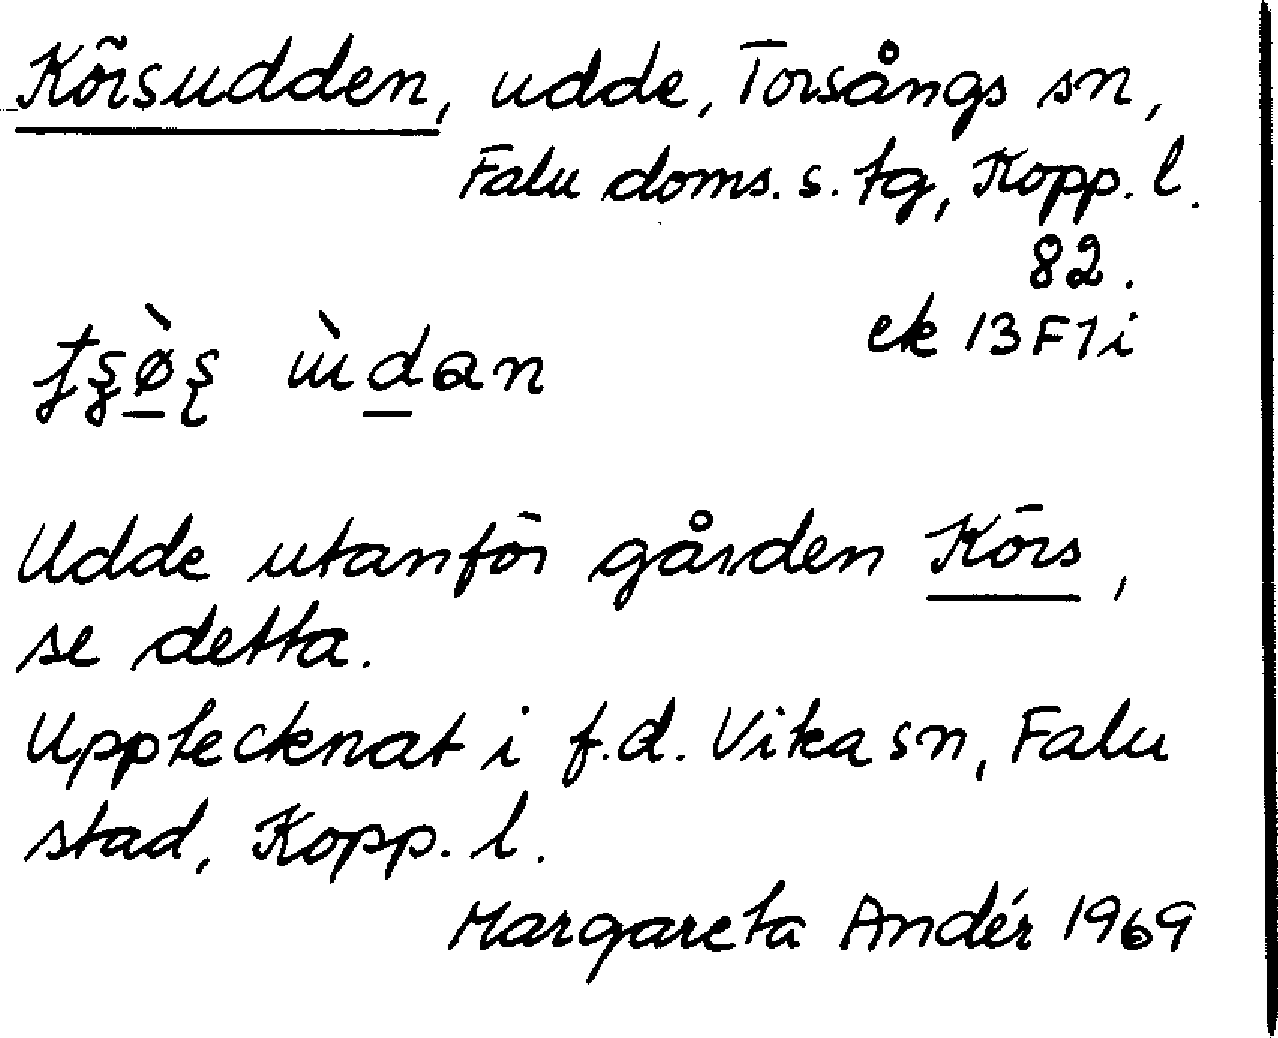 Körsudden, udde, Torsångs sn,
Falu doms. s. tg, Kopp. l.
82.
ek 13F7i
Udde utanför gården Körs,
se detta.
Upptecknat i f.d. Vika sn, Falu
stad, Kopp. l.
Margareta Andér 1969